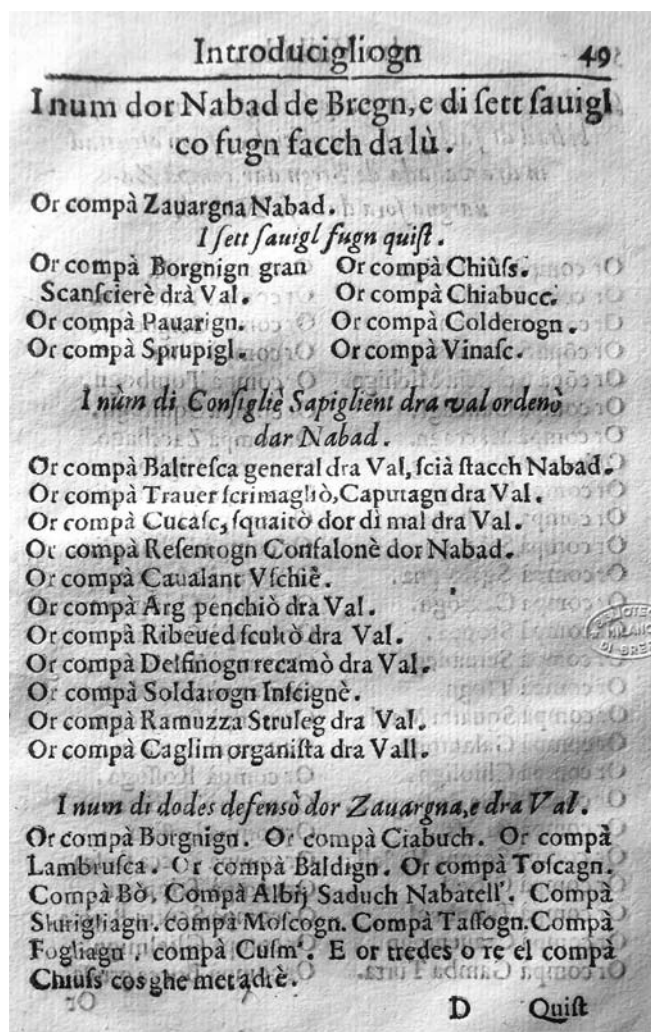 Introducigliogn 49
I num dor Nabad de Bregn, e di ſett ſauigl
co fugn facch da lù.
Or compà Zauargna Nabad.
I ſett ſauigl fugn quiſt.
Or compà Borgnign gran
Scanſcierè drà Val.
Or compà Pauarign.
Or compà Sprupigl.
Or compà Chiùſs.
Or compà Chiabucc.
Or compà Colderogn.
Or compà Vinaſc.
I nùm di Conſigliè Sapiglient dra val ordenò
dar Nabad.
Or compà Baltreſca general dra Val, ſcià ſtacch Nabad.
Or compà Trauer ſcrimagliò, Caputagn dra Val.
Or compà Cucàſc, ſquaitò dor dì mal dra Val.
Or compà Reſentogn Confalonè dor Nabad.
Or compà Caualant Vſchiè.
Or compà Arg penchiò dra Val.
Or compà Ribeued ſcultò dra Val.
Or compà Delfinogn recamò dra Val.
Or compà Soldarogn Inſeignè.
Or compà Ramuzza Struleg dra Val.
Or compà Caglim organiſta dra Vall.
I num di dodes defensò dor Zauargna, e dra Val.
Or compà Borgnign. Or compà Ciabuch. Or compà
Lambruſca. Or compà Baldign. Or compà Toſcagn.
Compà Bò. Compà Albij Saduch Nabatell'. Compà
compà Moſcogn. Compà Taſſogn. Compà
Fogliagn. compà Cuſm'. E or tredes o re el compà
Chiuſs' cos ghe met adiè.
D Quiſt